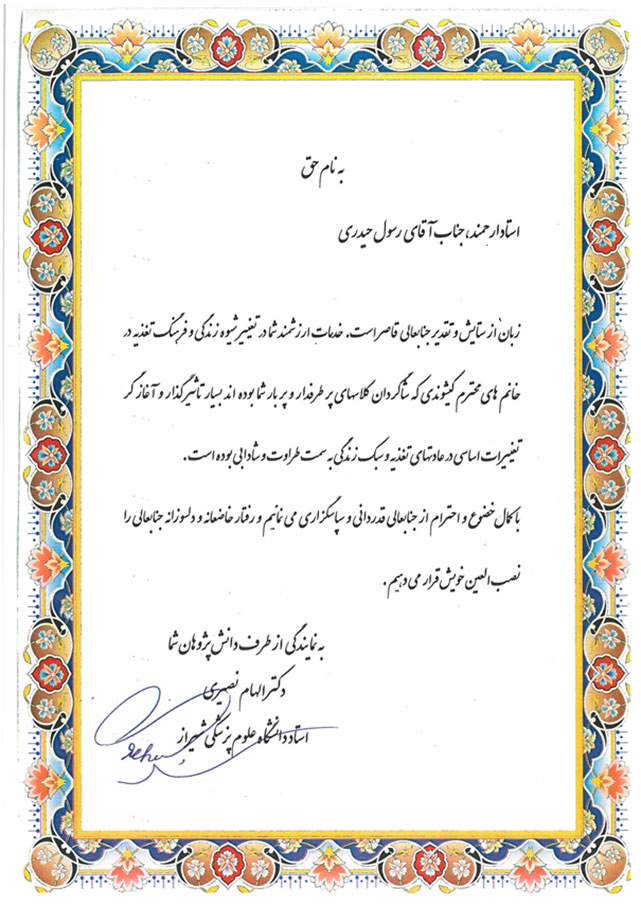 به نام حق
استاد ارجمند، جناب آقای رسول حیدری
زبان از ستایش و تقدیر جنابعالی قاصر است. خدمات ارزشمند شما در تغییر شیوه زندگی و فرهنگ تغذیه در
خانم های محترم کیشوندی که شاگردان کلاسهای پر طرفدار و پر بار شما بوده اند بسیار تاثیرگذار و آغاز گر
تغییرات اساسی در عادتهای تغذیه و سبک زندگی به سمت طراوت و شادابی بوده است.
با کمال خضوع و احترام از جنابعالی قدردانی و سپاسگزاری می نمائیم و رفتار خاضعانه و دلسوزانه جنابعالی را
نصب العین خویش قرار می دهیم.
به نمایندگی از طرف دانش پژوهان شما
دکتر الهام نصیری
استاد دانشگاه علوم پزشکی شیراز